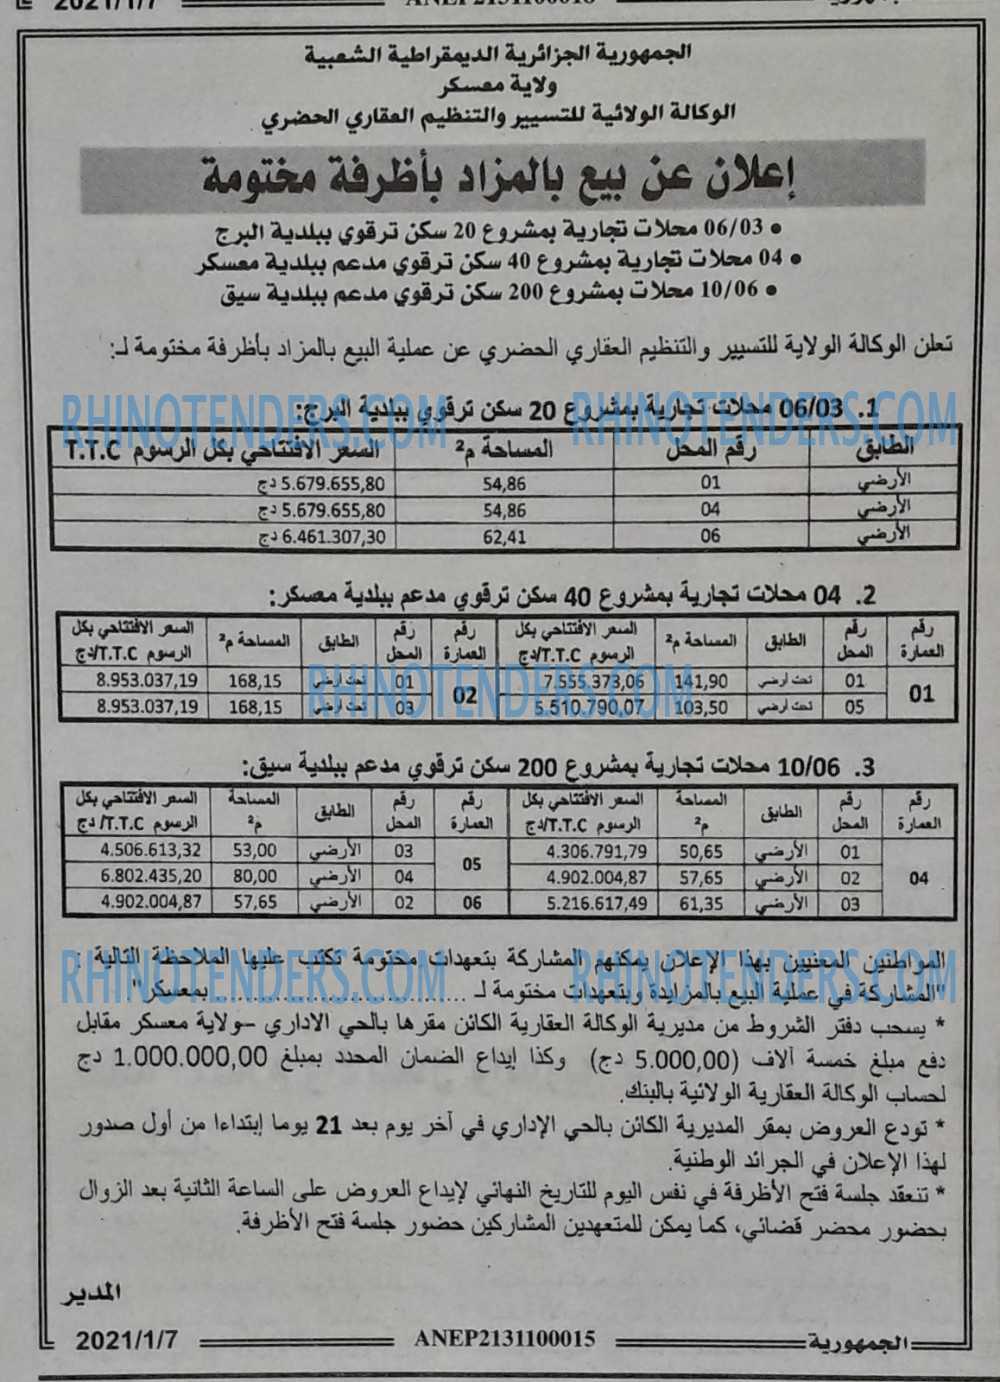 2021/1/7 ANEP2131100018
الجمهورية الجزائرية الديمقراطية الشعبية
ولاية معسكر
الوكالة الولائية للتسيير والتنظيم العقاري الحضري
إعلان عن بيع بالمزاد بأظرفة مختومة
• 06/03 محلات تجارية بمشروع 20 سكن ترقوي ببلدية البرج
• 04 محلات تجارية بمشروع 40 سكن ترقوي مدعم ببلدية معسكر
• 10/06 محلات بمشروع 200 سكن ترقوي مدعم ببلدية سيق
تعلن الوكالة الولاية للتسيير والتنظيم العقاري الحضري عن عملية البيع بالمزاد بأظرفة مختومة لـ:
1. 06/03 محلات تجارية بمشروع 20 سكن ترقوي ببلدية البرج:
RHINOTENDERS.COM RHINOTENDERS.COM
الطابق رقم المحل المساحة م² السعر الافتتاحي بكل الرسوم T.T.C
الأرضي 01 54,86 5.679.655,80 دج
الأرضي 04 54,86 5.679.655,80 دج
الأرضي 06 62,41 6.461.307,30 دج
2. 04 محلات تجارية بمشروع 40 سكن ترقوي مدعم ببلدية معسكر:
رقم العمارة رقم المحل الطابق المساحة م² السعر الافتتاحي بكل الرسوم T.T.C/دج رقم العمارة رقم المحل الطابق المساحة م² السعر الافتتاحي بكل الرسوم T.T.C/دج
01 01 تحت أرضي 141,90 7.555.373,06 02 01 تحت أرضي 168,15 8.953.037,19
05 تحت أرضي 103,50 5.510.790,07 03 تحت أرضي 168,15 8.953.037,19
RHINOTENDERS.COM
3. 10/06 محلات تجارية بمشروع 200 سكن ترقوي مدعم ببلدية سيق:
رقم العمارة رقم المحل الطابق المساحة م² السعر الافتتاحي بكل الرسوم T.T.C/دج رقم العمارة رقم المحل الطابق المساحة م² السعر الافتتاحي بكل الرسوم T.T.C/دج
04 01 الأرضي 50,65 4.306.791,79 05 03 الأرضي 53,00 4.506.613,32
02 الأرضي 57,65 4.902.004,87 04 الأرضي 80,00 6.802.435,20
03 الأرضي 61,35 5.216.617,49 06 02 الأرضي 57,65 4.902.004,87
المواطنين المعنيين بهذا الإعلان يمكنهم المشاركة بتعهدات مختومة تكتب عليها الملاحظة التالية :
RHINOTENDERS.COM RHINOTENDERS.COM
"المشاركة في عملية البيع بالمزايدة وبتعهدات مختومة لـ ................................بمعسكر"
* يسحب دفتر الشروط من مديرية الوكالة العقارية الكائن مقرها بالحي الاداري -ولاية معسكر مقابل
دفع مبلغ خمسة آلاف (5.000,00 دج) وكذا إيداع الضمان المحدد بمبلغ 1.000.000,00 دج
لحساب الوكالة العقارية الولائية بالبنك.
* تودع العروض بمقر المديرية الكائن بالحي الإداري في آخر يوم بعد 21 يوما إبتداءا من أول صدور
لهذا الإعلان في الجرائد الوطنية.
* تنعقد جلسة فتح الأظرفة في نفس اليوم للتاريخ النهائي لإيداع العروض على الساعة الثانية بعد الزوال
بحضور محضر قضائي، كما يمكن للمتعهدين المشاركين حضور جلسة فتح الأظرفة.
المدير
الجمهورية ANEP2131100015 2021/1/7